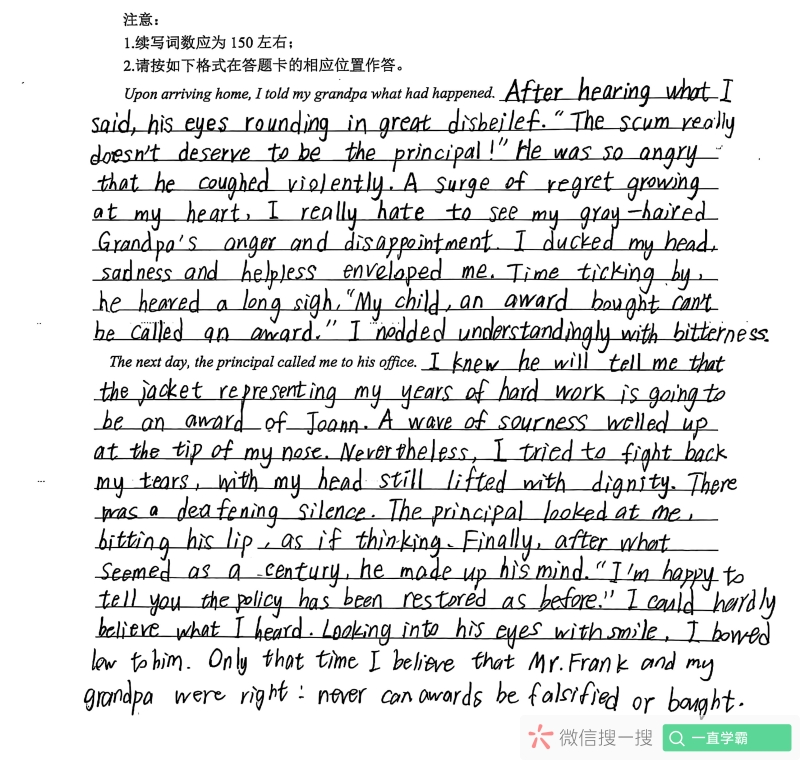 注意：
1.续写词数应为 150 左右；
2.请按如下格式在答题卡的相应位置作答。
Upon arriving home, I told my grandpa what had happened. After hearing what I
said, his eyes rounding in great disbeilef. "The scum really
doesn't deserve to be the principal!" He was so angry
that he coughed violently. A surge of regret growing
at my heart, I really hate to see my gray-haired
Grandpa's anger and disappointment. I ducked my head,
sadness and helpless enveloped me. Time ticking by,
he heaved a long sigh, "My child, an award bought can't
be called an award." I nodded understandingly with bitterness.
The next day, the principal called me to his office. I knew he will tell me that
the jacket representing my years of hard work is going to
be an award of Joann. A wave of sourness welled up
at the tip of my nose. Nevertheless, I tried to fight back
my tears, with my head still lifted with dignity. There
was a deafening silence. The principal looked at me,
bitting his lip, as if thinking. Finally, after what
seemed as a century, he made up his mind. "I'm happy to
tell you the policy has been restored as before." I could hardly
believe what I heard. Looking into his eyes with smile, I bowed
low to him. Only that time I believe that Mr. Frank and my
grandpa were right: never can awards be falsified or bought.
微信搜一搜 一直学霸